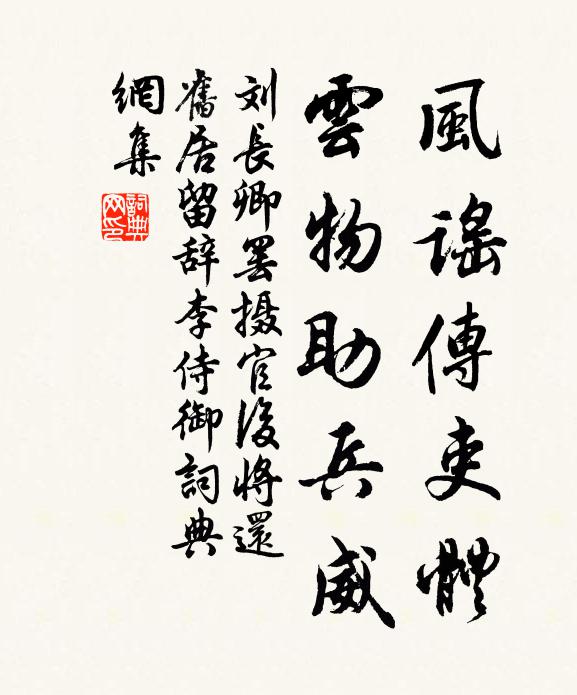 風謠傳吏體
雲物助兵威
刘長卿罢摄官後將還
舊居留辞李侍御詞典
網集
詞典网印